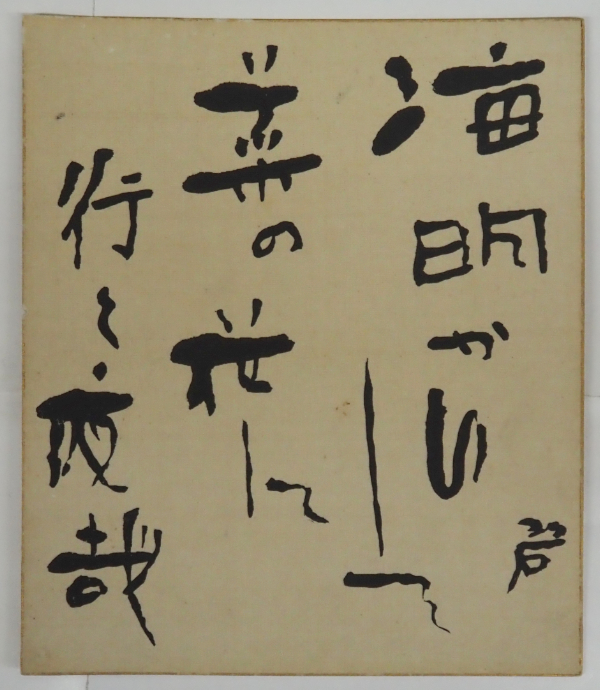 海明かりして
菜の花に
行く夜哉
碧